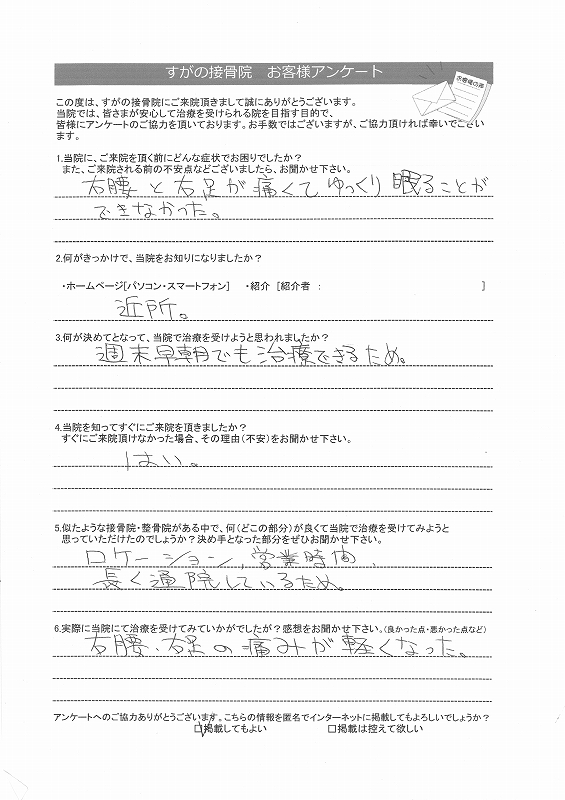 すがの接骨院 お客様アンケート
お客様の声
この度は、すがの接骨院にご来院頂きまして誠にありがとうございます。
当院では、皆さまが安心して治療を受けられる院を目指す目的で、
皆様にアンケートのご協力を頂いております。お手数ではございますが、ご協力頂ければ幸いでござい
ます。
1.当院に、ご来院を頂く前にどんな症状でお困りでしたか？
また、ご来院される前の不安点などございましたら、お聞かせ下さい。
右腰と右足が痛くてゆっくり眠ることが
できなかった。
2.何がきっかけで、当院をお知りになりましたか？
・ホームページ[パソコン・スマートフォン] ・紹介 [紹介者 : ]
近所。
3.何が決めてとなって、当院で治療を受けようと思われましたか？
週末早朝でも治療できるため。
4.当院を知ってすぐにご来院を頂きましたか？
すぐにご来院頂けなかった場合、その理由(不安)をお聞かせ下さい。
はい。
5.似たような接骨院・整骨院がある中で、何(どこの部分)が良くて当院で治療を受けてみようと
思っていただけたのでしょうか？決め手となった部分をぜひお聞かせ下さい。
ロケーション、営業時間、
長く通院しているため。
6.実際に当院にて治療を受けてみていかがでしたか？感想をお聞かせ下さい。(良かった点・悪かった点など)
右腰、右足の痛みが軽くなった。
アンケートへのご協力ありがとうございます。こちらの情報を匿名でインターネットに掲載してもよろしいでしょうか？
☑掲載してもよい □掲載は控えて欲しい